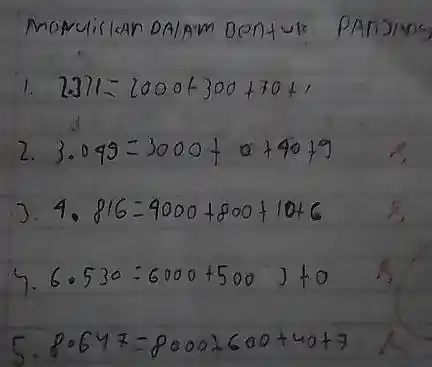 MONULISKAN DALAM BENTUK PANJANG
1. 2371 = 2000 + 300 + 70 + 1
2. 3.049 = 3000 + 0 + 40 + 9
3. 4.816 = 4000 + 800 + 10 + 6
4. 6.530 = 6000 + 500 + 0
5. 8.647 = 8000 + 600 + 40 + 7